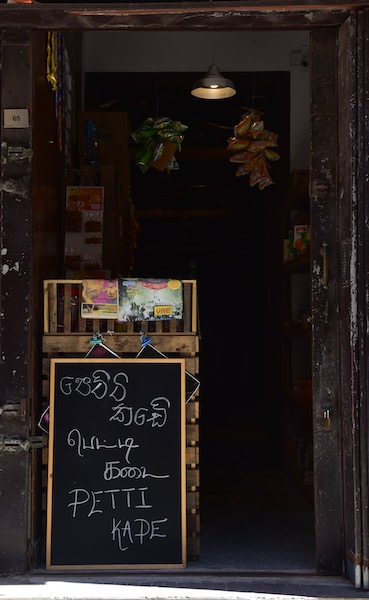 65
පෙට්ටි
කඩේ
பெட்டி
கடை
PETTI
KADE